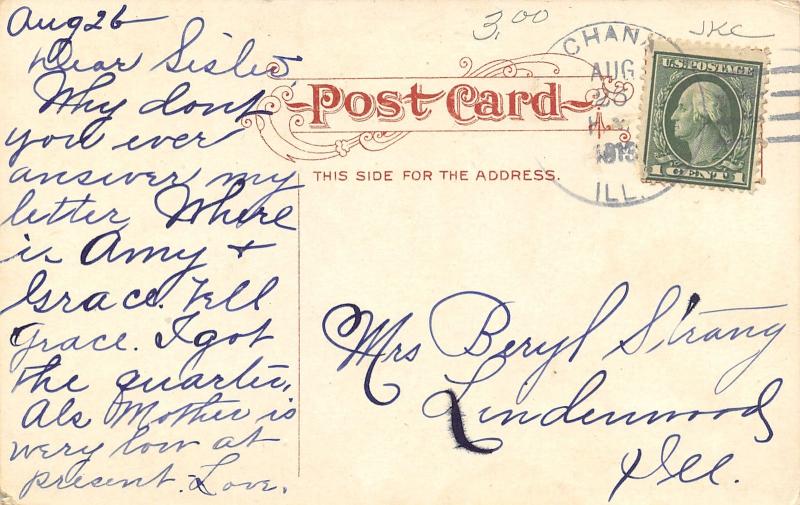 Aug 26
Dear Sister,
Why dont
you ever
answer my
letter. Where
is Amy +
Grace. Tell
Grace. I got
the quarter.
Als Mother is
very low at
present. Love.
3.00
JKC
CHANA
AUG
ILL.
U.S. POSTAGE
1 CENT 1
Post Card
THIS SIDE FOR THE ADDRESS.
Mrs Beryl Strang
Lindenwood
Ill.